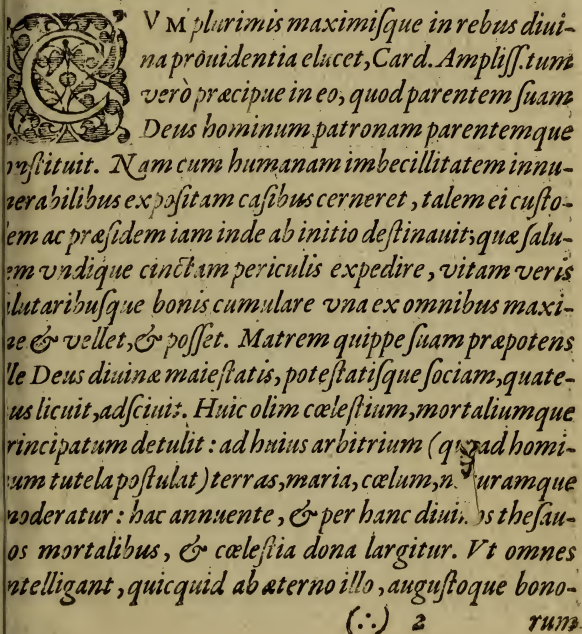 CVM plurimis maximiſque in rebus diui-
na prouidentia elucet, Card. Ampliſſ. tum
verò præcipue in eo, quod parentem ſuam
Deus hominum patronam parentemque
nſtituit. Nam cum humanam imbecillitatem innu-
nerabilibus expoſitam caſibus cerneret, talem ei cuſto-
em ac præſidem iam inde ab initio deſtinauit; quæ ſalu-
em vndique cinctam periculis expedire, vitam veris
lutaribuſque bonis cumulare vna ex omnibus maxi-
ne & vellet, & poſſet. Matrem quippe ſuam præpotens
lle Deus diuinæ maieſtatis, poteſtatiſque ſociam, quate-
us licuit, adſciuit. Huic olim cœleſtium, mortaliumque
rincipatum detulit: ad huius arbitrium (quoad homi-
um tutela poſtulat) terras, maria, cœlum, n uramque
moderatur: hac annuente, & per hanc diui os theſau-
os mortalibus, & cœleſtia dona largitur. Vt omnes
ntelligant, quicquid ab æterno illo, auguſtoque bono-
(∴) 2 rum